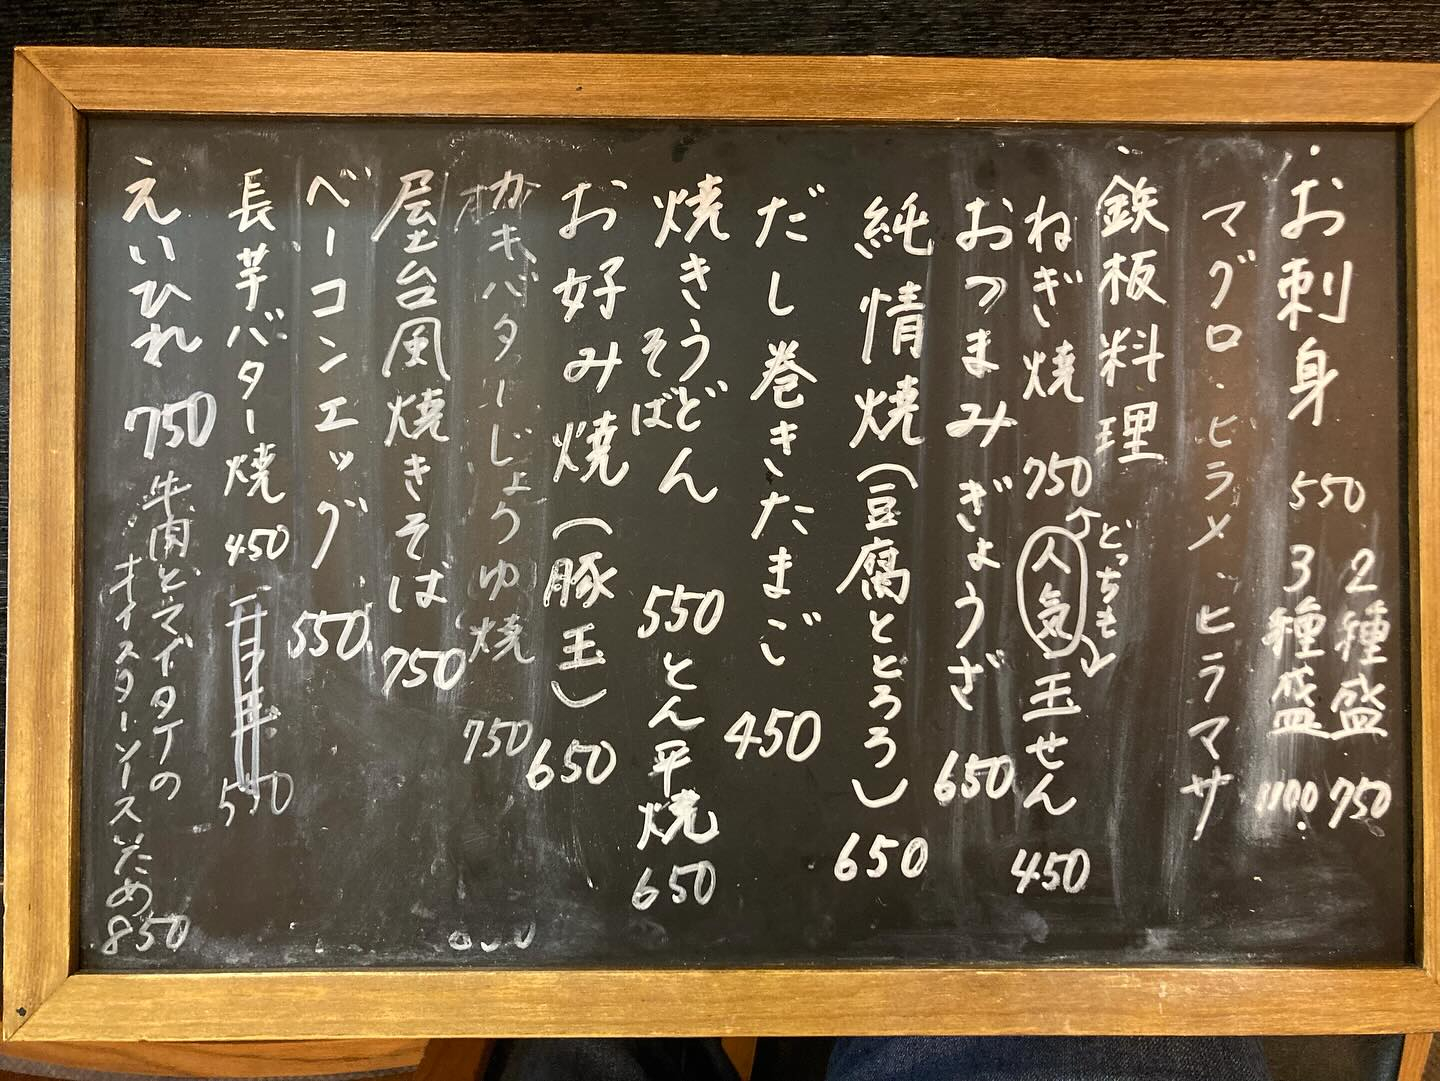 ・お刺身 550
2種盛 750
3種盛 1100
マグロ・ヒラメ・ヒラマサ
・鉄板料理
ねぎ焼 750
どっちも
人気
玉せん 450
おつまみぎょうざ 650
純情焼(豆腐ととろろ) 650
だし巻きたまご 450
焼きうどん
そば
550
とん平焼 650
お好み焼(豚玉) 650
カキバターじょうゆ焼 750
屋台風焼きそば 750
ベーコンエッグ 550
長芋バター焼 450
550
えいひれ 750
牛肉とマイタケの
オイスターソースいため 850